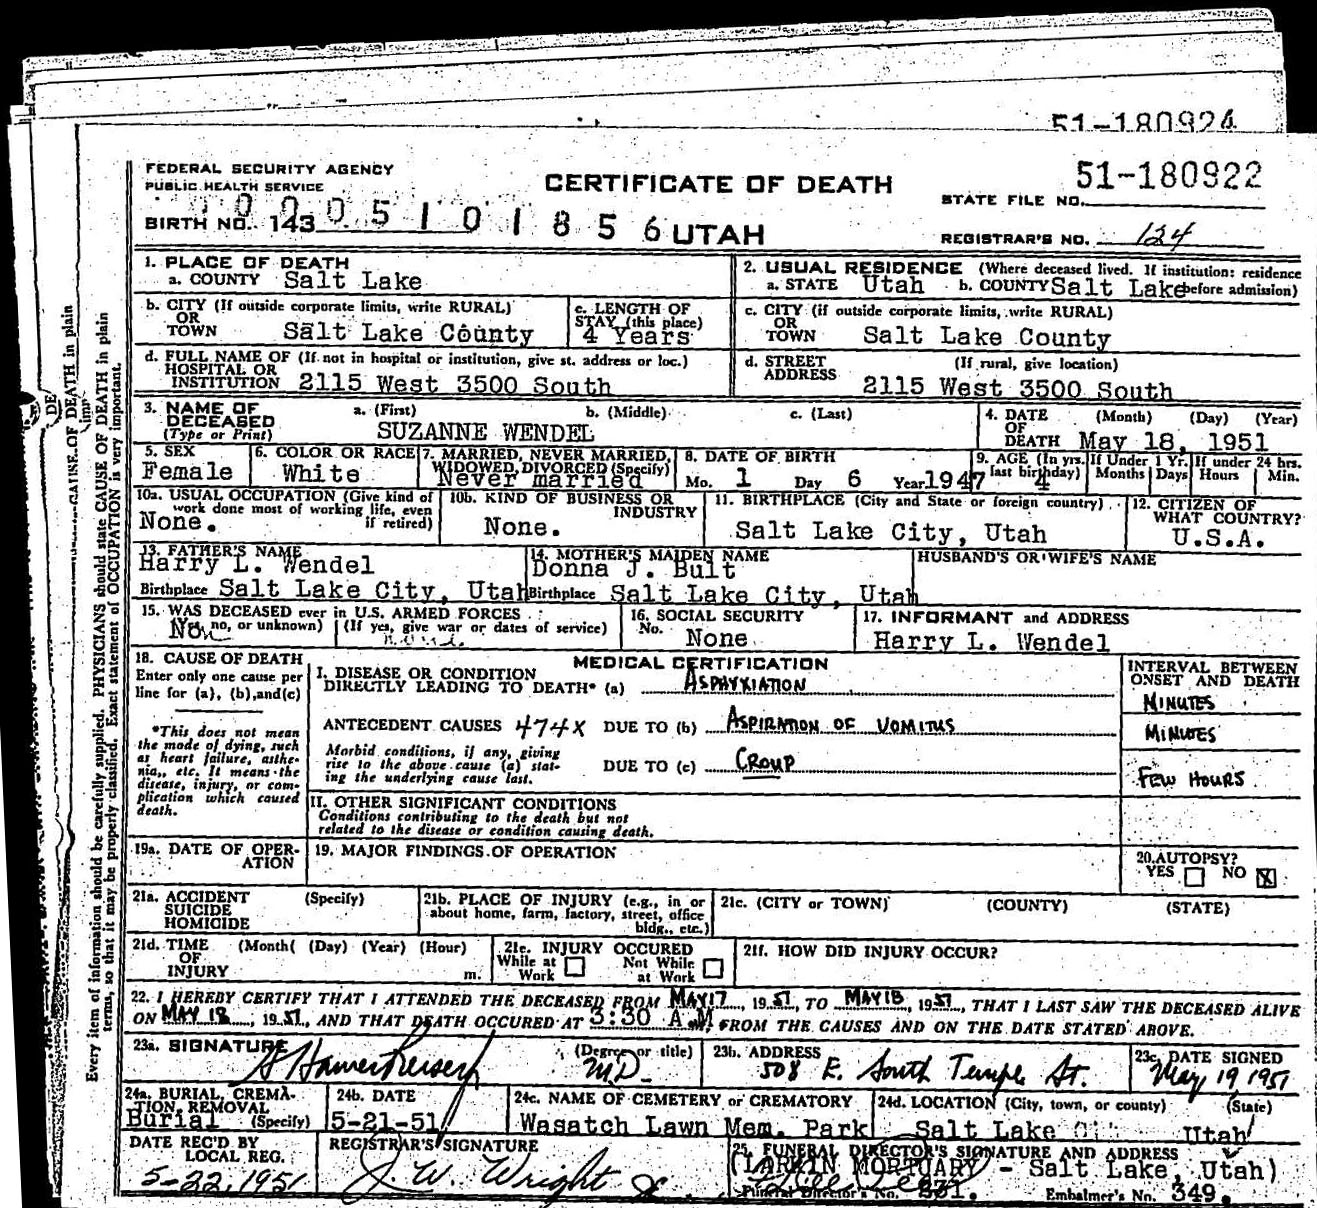 51-180924
FEDERAL SECURITY AGENCY
PUBLIC HEALTH SERVICE
CERTIFICATE OF DEATH
51-180922
STATE FILE NO.
BIRTH NO. 143 0005101856 UTAH
REGISTRAR'S NO. 124
1. PLACE OF DEATH
a. COUNTY Salt Lake
2. USUAL RESIDENCE (Where deceased lived. If institution: residence before admission)
a. STATE Utah b. COUNTY Salt Lake
b. CITY (If outside corporate limits, write RURAL)
OR
TOWN Salt Lake County
c. LENGTH OF
STAY (this place)
4 Years
c. CITY (if outside corporate limits, write RURAL)
OR
TOWN Salt Lake County
d. FULL NAME OF (If not in hospital or institution, give st. address or loc.)
HOSPITAL OR
INSTITUTION 2115 West 3500 South
d. STREET (If rural, give location)
ADDRESS
2115 West 3500 South
3. NAME OF
DECEASED
(Type or Print)
a. (First) b. (Middle) c. (Last)
SUZANNE WENDEL
4. DATE (Month) (Day) (Year)
OF
DEATH May 18, 1951
5. SEX
Female
6. COLOR OR RACE
White
7. MARRIED, NEVER MARRIED,
WIDOWED, DIVORCED (Specify)
Never married
8. DATE OF BIRTH
Mo. 1 Day 6 Year 1947
9. AGE (In yrs. last birthday) 4
If Under 1 Yr.
Months Days
If under 24 hrs.
Hours Min.
10a. USUAL OCCUPATION (Give kind of
work done most of working life, even
if retired)
None.
10b. KIND OF BUSINESS OR
INDUSTRY
None.
11. BIRTHPLACE (City and State or foreign country)
Salt Lake City, Utah
12. CITIZEN OF
WHAT COUNTRY?
U.S.A.
13. FATHER'S NAME
Harry L. Wendel
Birthplace Salt Lake City, Utah
14. MOTHER'S MAIDEN NAME
Donna J. Bult
Birthplace Salt Lake City, Utah
HUSBAND'S OR WIFE'S NAME
15. WAS DECEASED ever in U.S. ARMED FORCES
(Yes, no, or unknown) (If yes, give war or dates of service)
No
16. SOCIAL SECURITY
No. None
17. INFORMANT and ADDRESS
Harry L. Wendel
18. CAUSE OF DEATH
Enter only one cause per
line for (a), (b), and (c)
*This does not mean
the mode of dying, such
as heart failure, asthe-
nia, etc. It means the
disease, injury, or com-
plication which caused
death.
MEDICAL CERTIFICATION
I. DISEASE OR CONDITION
DIRECTLY LEADING TO DEATH* (a) ASPHYXIATION
ANTECEDENT CAUSES 474X DUE TO (b) ASPIRATION OF VOMITUS
Morbid conditions, if any, giving
rise to the above cause (a) stat-
ing the underlying cause last.
DUE TO (c) CROUP
INTERVAL BETWEEN
ONSET AND DEATH
MINUTES
MINUTES
FEW HOURS
II. OTHER SIGNIFICANT CONDITIONS
Conditions contributing to the death but not
related to the disease or condition causing death.
19a. DATE OF OPER-
ATION
19. MAJOR FINDINGS OF OPERATION
20. AUTOPSY?
YES NO X
21a. ACCIDENT (Specify)
SUICIDE
HOMICIDE
21b. PLACE OF INJURY (e.g., in or
about home, farm, factory, street, office
bldg., etc.)
21c. (CITY or TOWN) (COUNTY) (STATE)
21d. TIME (Month( (Day) (Year) (Hour)
OF
INJURY m.
21e. INJURY OCCURED
While at Work Not While at Work
21f. HOW DID INJURY OCCUR?
22. I HEREBY CERTIFY THAT I ATTENDED THE DECEASED FROM MAY 17, 1951, TO MAY 18, 1951, THAT I LAST SAW THE DECEASED ALIVE
ON MAY 18, 1951, AND THAT DEATH OCCURED AT 3:30 A.M. FROM THE CAUSES AND ON THE DATE STATED ABOVE.
23a. SIGNATURE
(Degree or title)
M.D.
23b. ADDRESS
508 E. South Temple St.
23c. DATE SIGNED
May 19 1951
24a. BURIAL, CREMA-
TION, REMOVAL
Burial (Specify)
24b. DATE
5-21-51
24c. NAME OF CEMETERY or CREMATORY
Wasatch Lawn Mem. Park
24d. LOCATION (City, town, or county) (State)
Salt Lake Utah
DATE REC'D BY
LOCAL REG.
5-22, 1951
REGISTRAR'S SIGNATURE
J. W. Wright
25. FUNERAL DIRECTOR'S SIGNATURE AND ADDRESS
(LARKIN MORTUARY - Salt Lake, Utah)
Funeral Director's No. Embalmer's No. 349.
Every item of information should be carefully supplied. PHYSICIANS should state CAUSE OF DEATH in plain
terms, so that it may be properly classified. Exact statement of OCCUPATION is very important.
CAUSE OF DEATH in plain